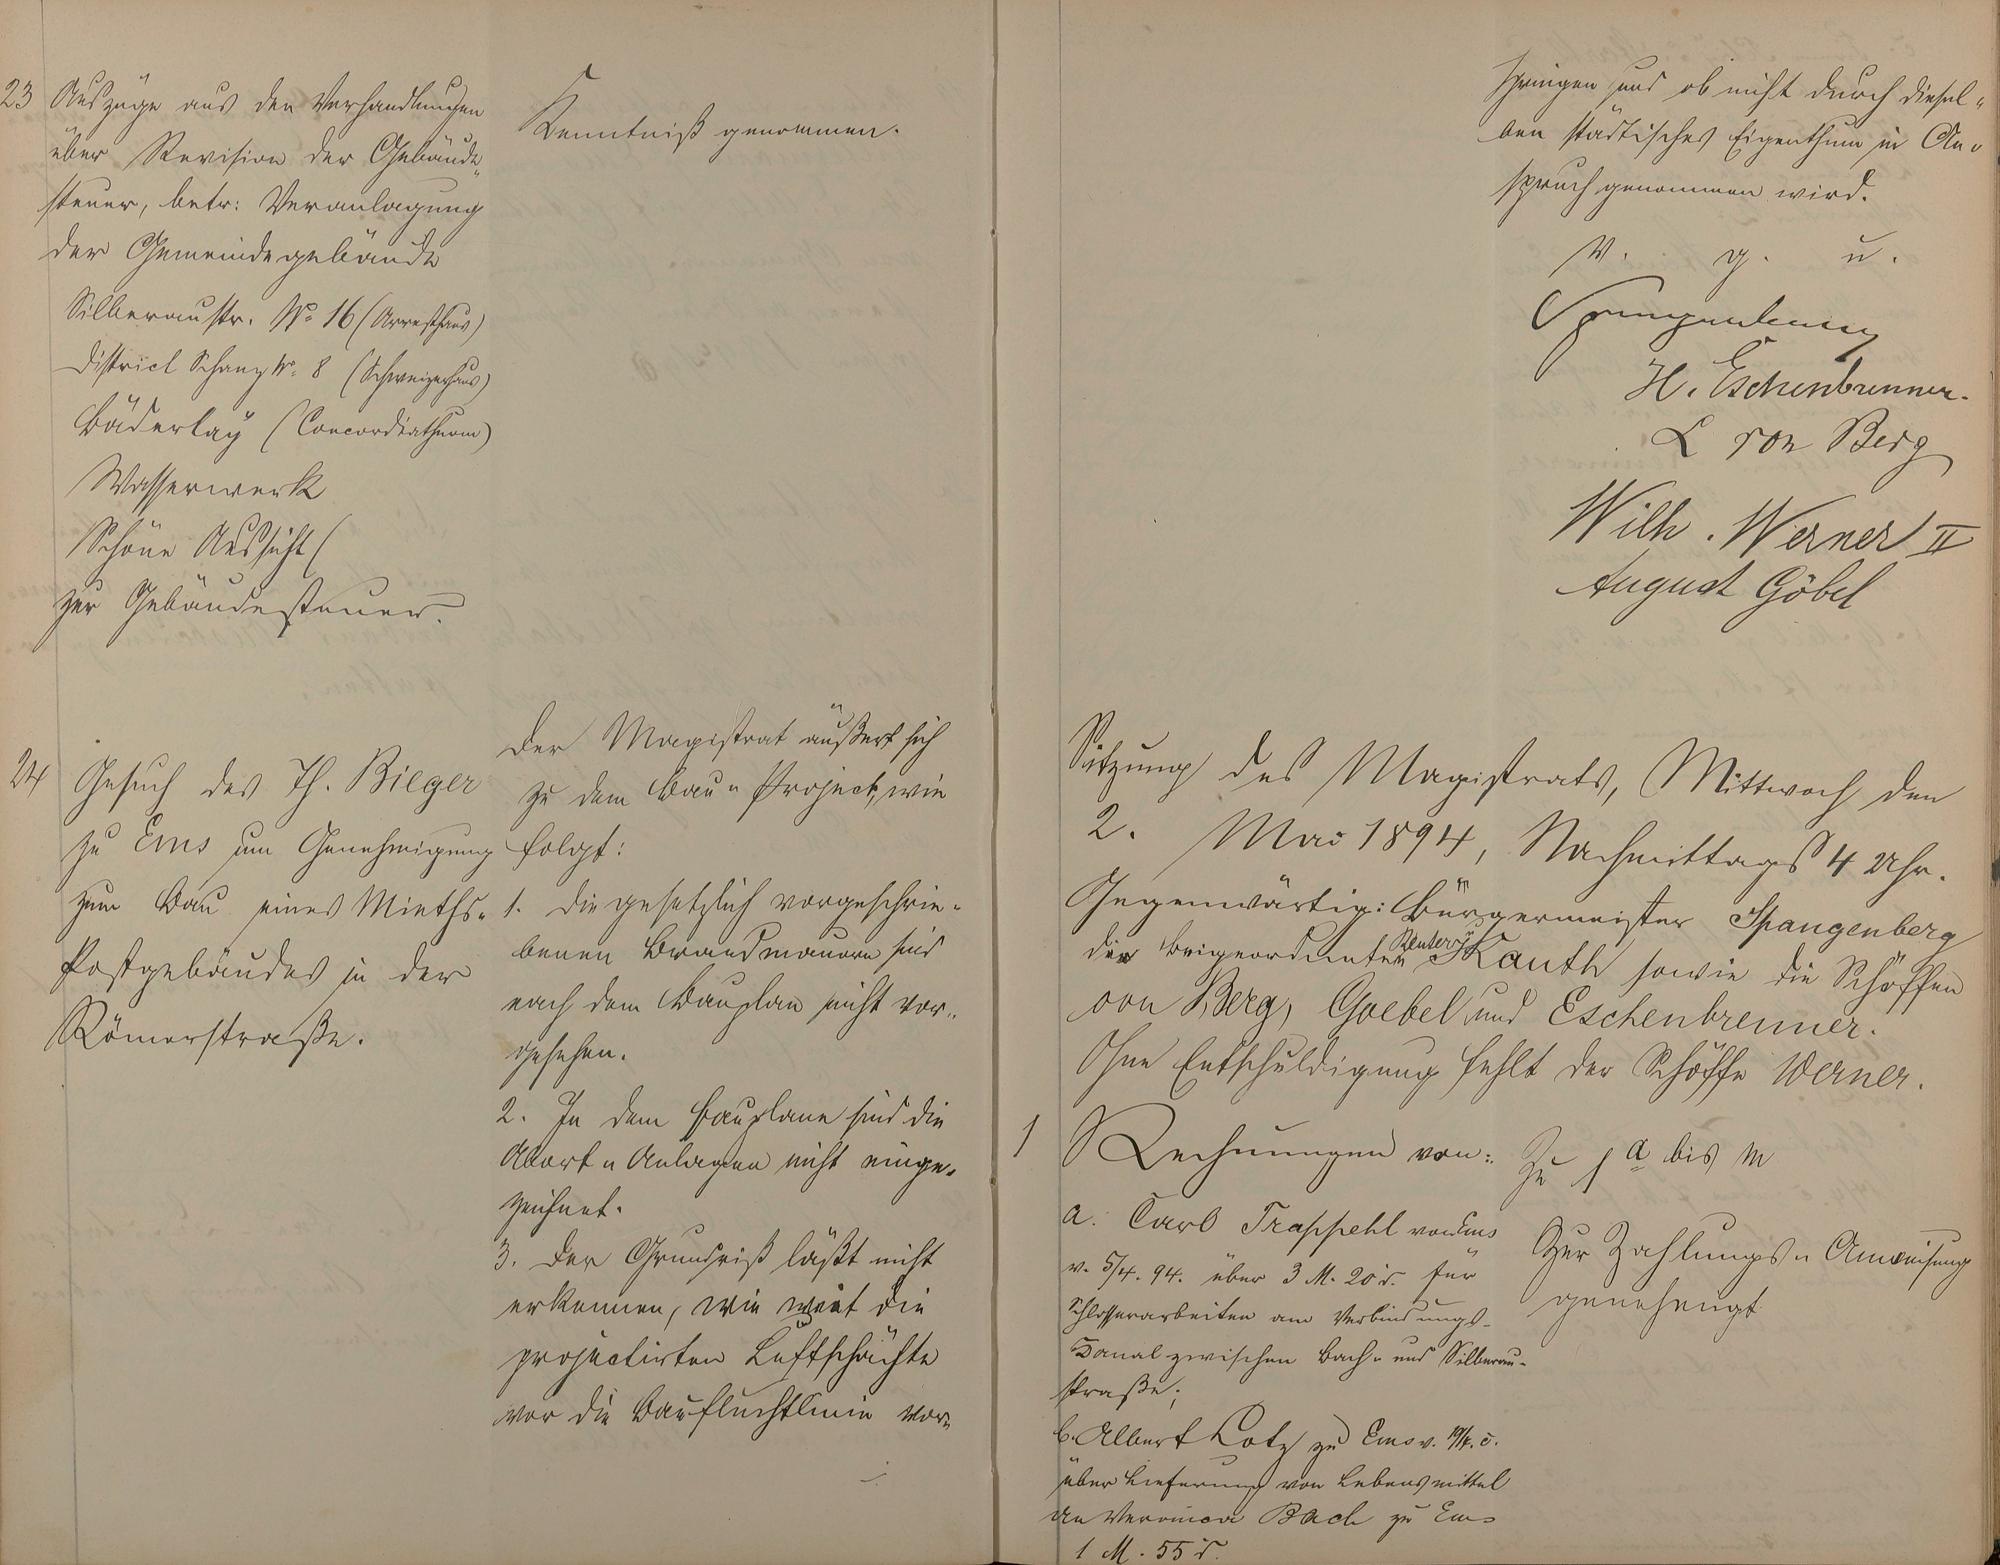 23 Auszüge aus den Verhandlungen
über Revision der Gebäude„
steuer, betr: Veranlagung
der Gemeindegebäude
Silberaustr. No 16 (Arresthaus)
District Schanz No. 8 (Schweizerhaus)
Bäderlay (Concordiathurm)
Wasserwerk
Schöne Aussicht (
zur Gebäudesteuer.
Kenntniß genommen.
24 Gesuch des Th. Bieger
zu Ems um Genehmigung
zum Bau eines Mieths„
Postgebäudes in der
Römerstraße.
Der Magistrat äußert sich
zu dem Bau„Project, wie
folgt:
1. Die gesetzlich vorgeschrie„
benen Brandmauern sind
nach dem Bauplan nicht vor„
gesehen.
2. In dem Bauplane sind die
Abort„Anlagen nicht einge„
zeichnet.
3. Der Grundriß läßt nicht
erkennen, wie weit die
projectirten Luftschächte
vor die Baufluchtlinie vor„
springen und ob nicht durch diesel„
ben städtisches Eigenthum in An„
spruch genommen wird.
V. g. u.
Spangenberg
H. Eschenbrenner.
L von Berg
Wilh. Werner II
August Göbel
Sitzung des Magistrats, Mittwoch den
2. Mai 1894, Nachmittags 4 Uhr.
Gegenwärtig: Bürgermeister Spangenberg
der Beigeordneten Rentery Kauth sowie die Schöffen
von Berg, Goebel und Eschenbrenner.
Ohne Entschuldigung fehlt der Schöffe Werner.
1 Rechnungen von:
a. Carl Trappehl von Ems
v. 5/4. 94. über 3 M. 20 d. für
Schlosserarbeiten am Verbindungs-
Kanal zwischen Bach„ und Silberau-
straße;
b. Albert Lotz zu Ems v. 19/4. c.
über Lieferung von Lebensmittel
an Veronica Bach zu Ems
1 M. 55 d.
Zu 1 a bis m
Zur Zahlungs„Anweisung
genehmigt